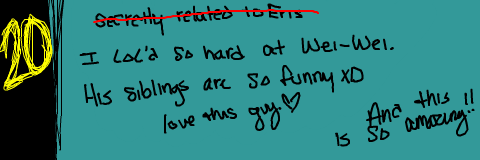 20
Secretly related to Eris
I LOL'd so hard at Wei-Wei.
His siblings are so funny XD
love this guy.♡
And this !!
is so amazing!!